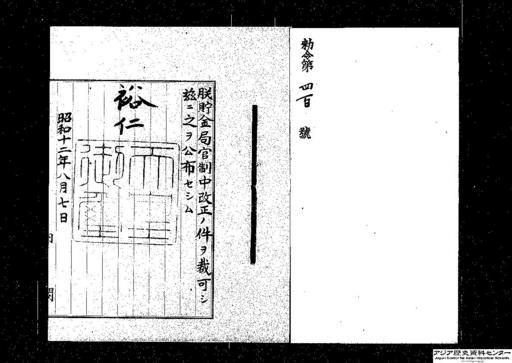 勅令第四百號
朕貯金局官制中改正ノ件ヲ裁可シ
茲ニ之ヲ公布セシム
裕仁
天皇
御璽
昭和十二年八月七日
内
アジア歴史資料センター
Japan Center for Asian Historical Records